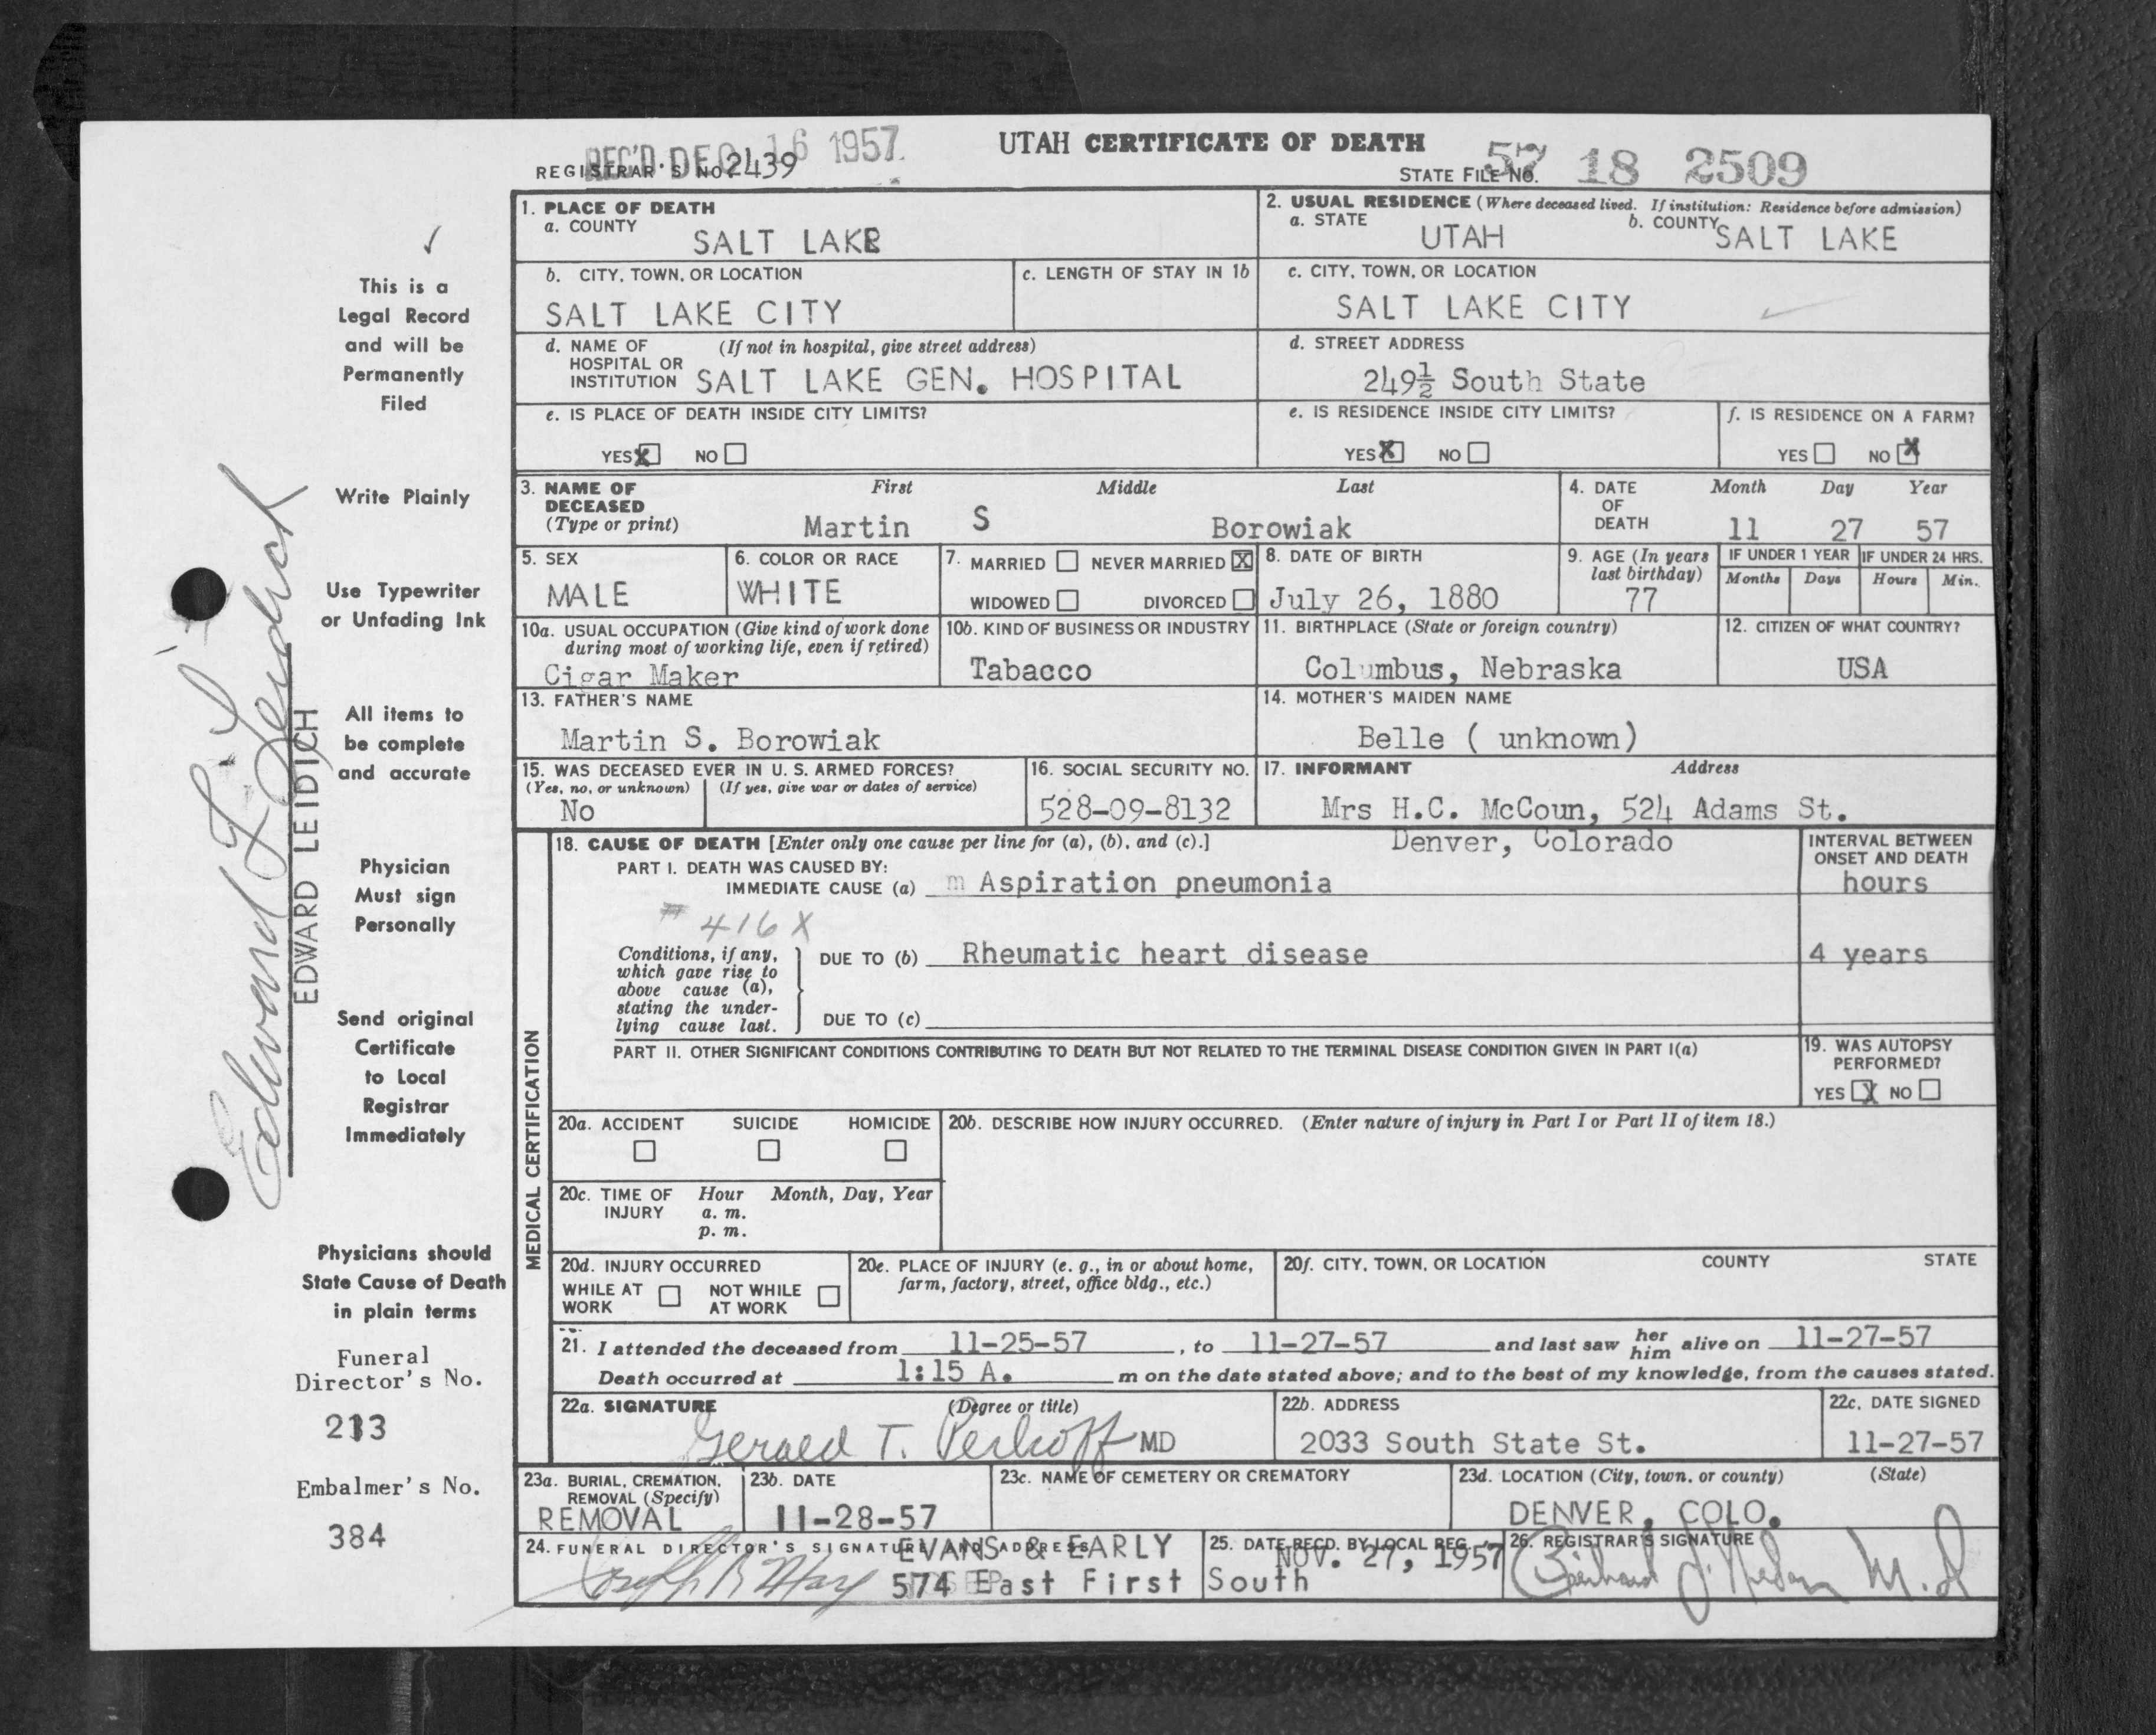 REC'D. DEC 16 1957.
UTAH CERTIFICATE OF DEATH
REGISTRAR'S NO. 2439
STATE FILE NO. 57 18 2509
1. PLACE OF DEATH
a. COUNTY
SALT LAKE
2. USUAL RESIDENCE (Where deceased lived. If institution: Residence before admission)
a. STATE UTAH b. COUNTY SALT LAKE
b. CITY, TOWN, OR LOCATION
SALT LAKE CITY
c. LENGTH OF STAY IN 1b
c. CITY, TOWN, OR LOCATION
SALT LAKE CITY
d. NAME OF HOSPITAL OR INSTITUTION (If not in hospital, give street address)
SALT LAKE GEN. HOSPITAL
d. STREET ADDRESS
249½ South State
e. IS PLACE OF DEATH INSIDE CITY LIMITS?
YES X NO
e. IS RESIDENCE INSIDE CITY LIMITS?
YES X NO
f. IS RESIDENCE ON A FARM?
YES NO X
3. NAME OF DECEASED (Type or print)
First Middle Last
Martin S Borowiak
4. DATE OF DEATH
Month Day Year
11 27 57
5. SEX
MALE
6. COLOR OR RACE
WHITE
7. MARRIED NEVER MARRIED X
WIDOWED DIVORCED
8. DATE OF BIRTH
July 26, 1880
9. AGE (In years last birthday)
77
IF UNDER 1 YEAR
Months Days
IF UNDER 24 HRS.
Hours Min.
10a. USUAL OCCUPATION (Give kind of work done during most of working life, even if retired)
Cigar Maker
10b. KIND OF BUSINESS OR INDUSTRY
Tabacco
11. BIRTHPLACE (State or foreign country)
Columbus, Nebraska
12. CITIZEN OF WHAT COUNTRY?
USA
13. FATHER'S NAME
Martin S. Borowiak
14. MOTHER'S MAIDEN NAME
Belle ( unknown)
15. WAS DECEASED EVER IN U. S. ARMED FORCES?
(Yes, no, or unknown) (If yes, give war or dates of service)
No
16. SOCIAL SECURITY NO.
528-09-8132
17. INFORMANT Address
Mrs H.C. McCoun, 524 Adams St.
Denver, Colorado
MEDICAL CERTIFICATION
18. CAUSE OF DEATH [Enter only one cause per line for (a), (b), and (c).]
INTERVAL BETWEEN ONSET AND DEATH
PART I. DEATH WAS CAUSED BY:
IMMEDIATE CAUSE (a) m Aspiration pneumonia hours
# 416 X
Conditions, if any, which gave rise to above cause (a), stating the underlying cause last.
DUE TO (b) Rheumatic heart disease 4 years
DUE TO (c)
PART II. OTHER SIGNIFICANT CONDITIONS CONTRIBUTING TO DEATH BUT NOT RELATED TO THE TERMINAL DISEASE CONDITION GIVEN IN PART I(a)
19. WAS AUTOPSY PERFORMED?
YES X NO
20a. ACCIDENT SUICIDE HOMICIDE
20b. DESCRIBE HOW INJURY OCCURRED. (Enter nature of injury in Part I or Part II of item 18.)
20c. TIME OF INJURY Hour Month, Day, Year
a. m.
p. m.
20d. INJURY OCCURRED
WHILE AT WORK NOT WHILE AT WORK
20e. PLACE OF INJURY (e. g., in or about home, farm, factory, street, office bldg., etc.)
20f. CITY, TOWN, OR LOCATION COUNTY STATE
21. I attended the deceased from 11-25-57, to 11-27-57 and last saw her him alive on 11-27-57
Death occurred at 1:15 A. m on the date stated above; and to the best of my knowledge, from the causes stated.
22a. SIGNATURE (Degree or title)
Gerald T. Perkoff MD
22b. ADDRESS
2033 South State St.
22c. DATE SIGNED
11-27-57
23a. BURIAL, CREMATION, REMOVAL (Specify)
REMOVAL
23b. DATE
11-28-57
23c. NAME OF CEMETERY OR CREMATORY
23d. LOCATION (City, town, or county) (State)
DENVER, COLO.
24. FUNERAL DIRECTOR'S SIGNATURE AND ADDRESS
EVANS & EARLY
574 East First South
25. DATE RECD. BY LOCAL REG.
NOV. 27, 1957
26. REGISTRAR'S SIGNATURE
M.D
This is a
Legal Record
and will be
Permanently
Filed
Write Plainly
Use Typewriter
or Unfading Ink
All items to
be complete
and accurate
Physician
Must sign
Personally
Send original
Certificate
to Local
Registrar
Immediately
Physicians should
State Cause of Death
in plain terms
Funeral
Director's No.
213
Embalmer's No.
384
Edward L Leidich
EDWARD LEIDICH